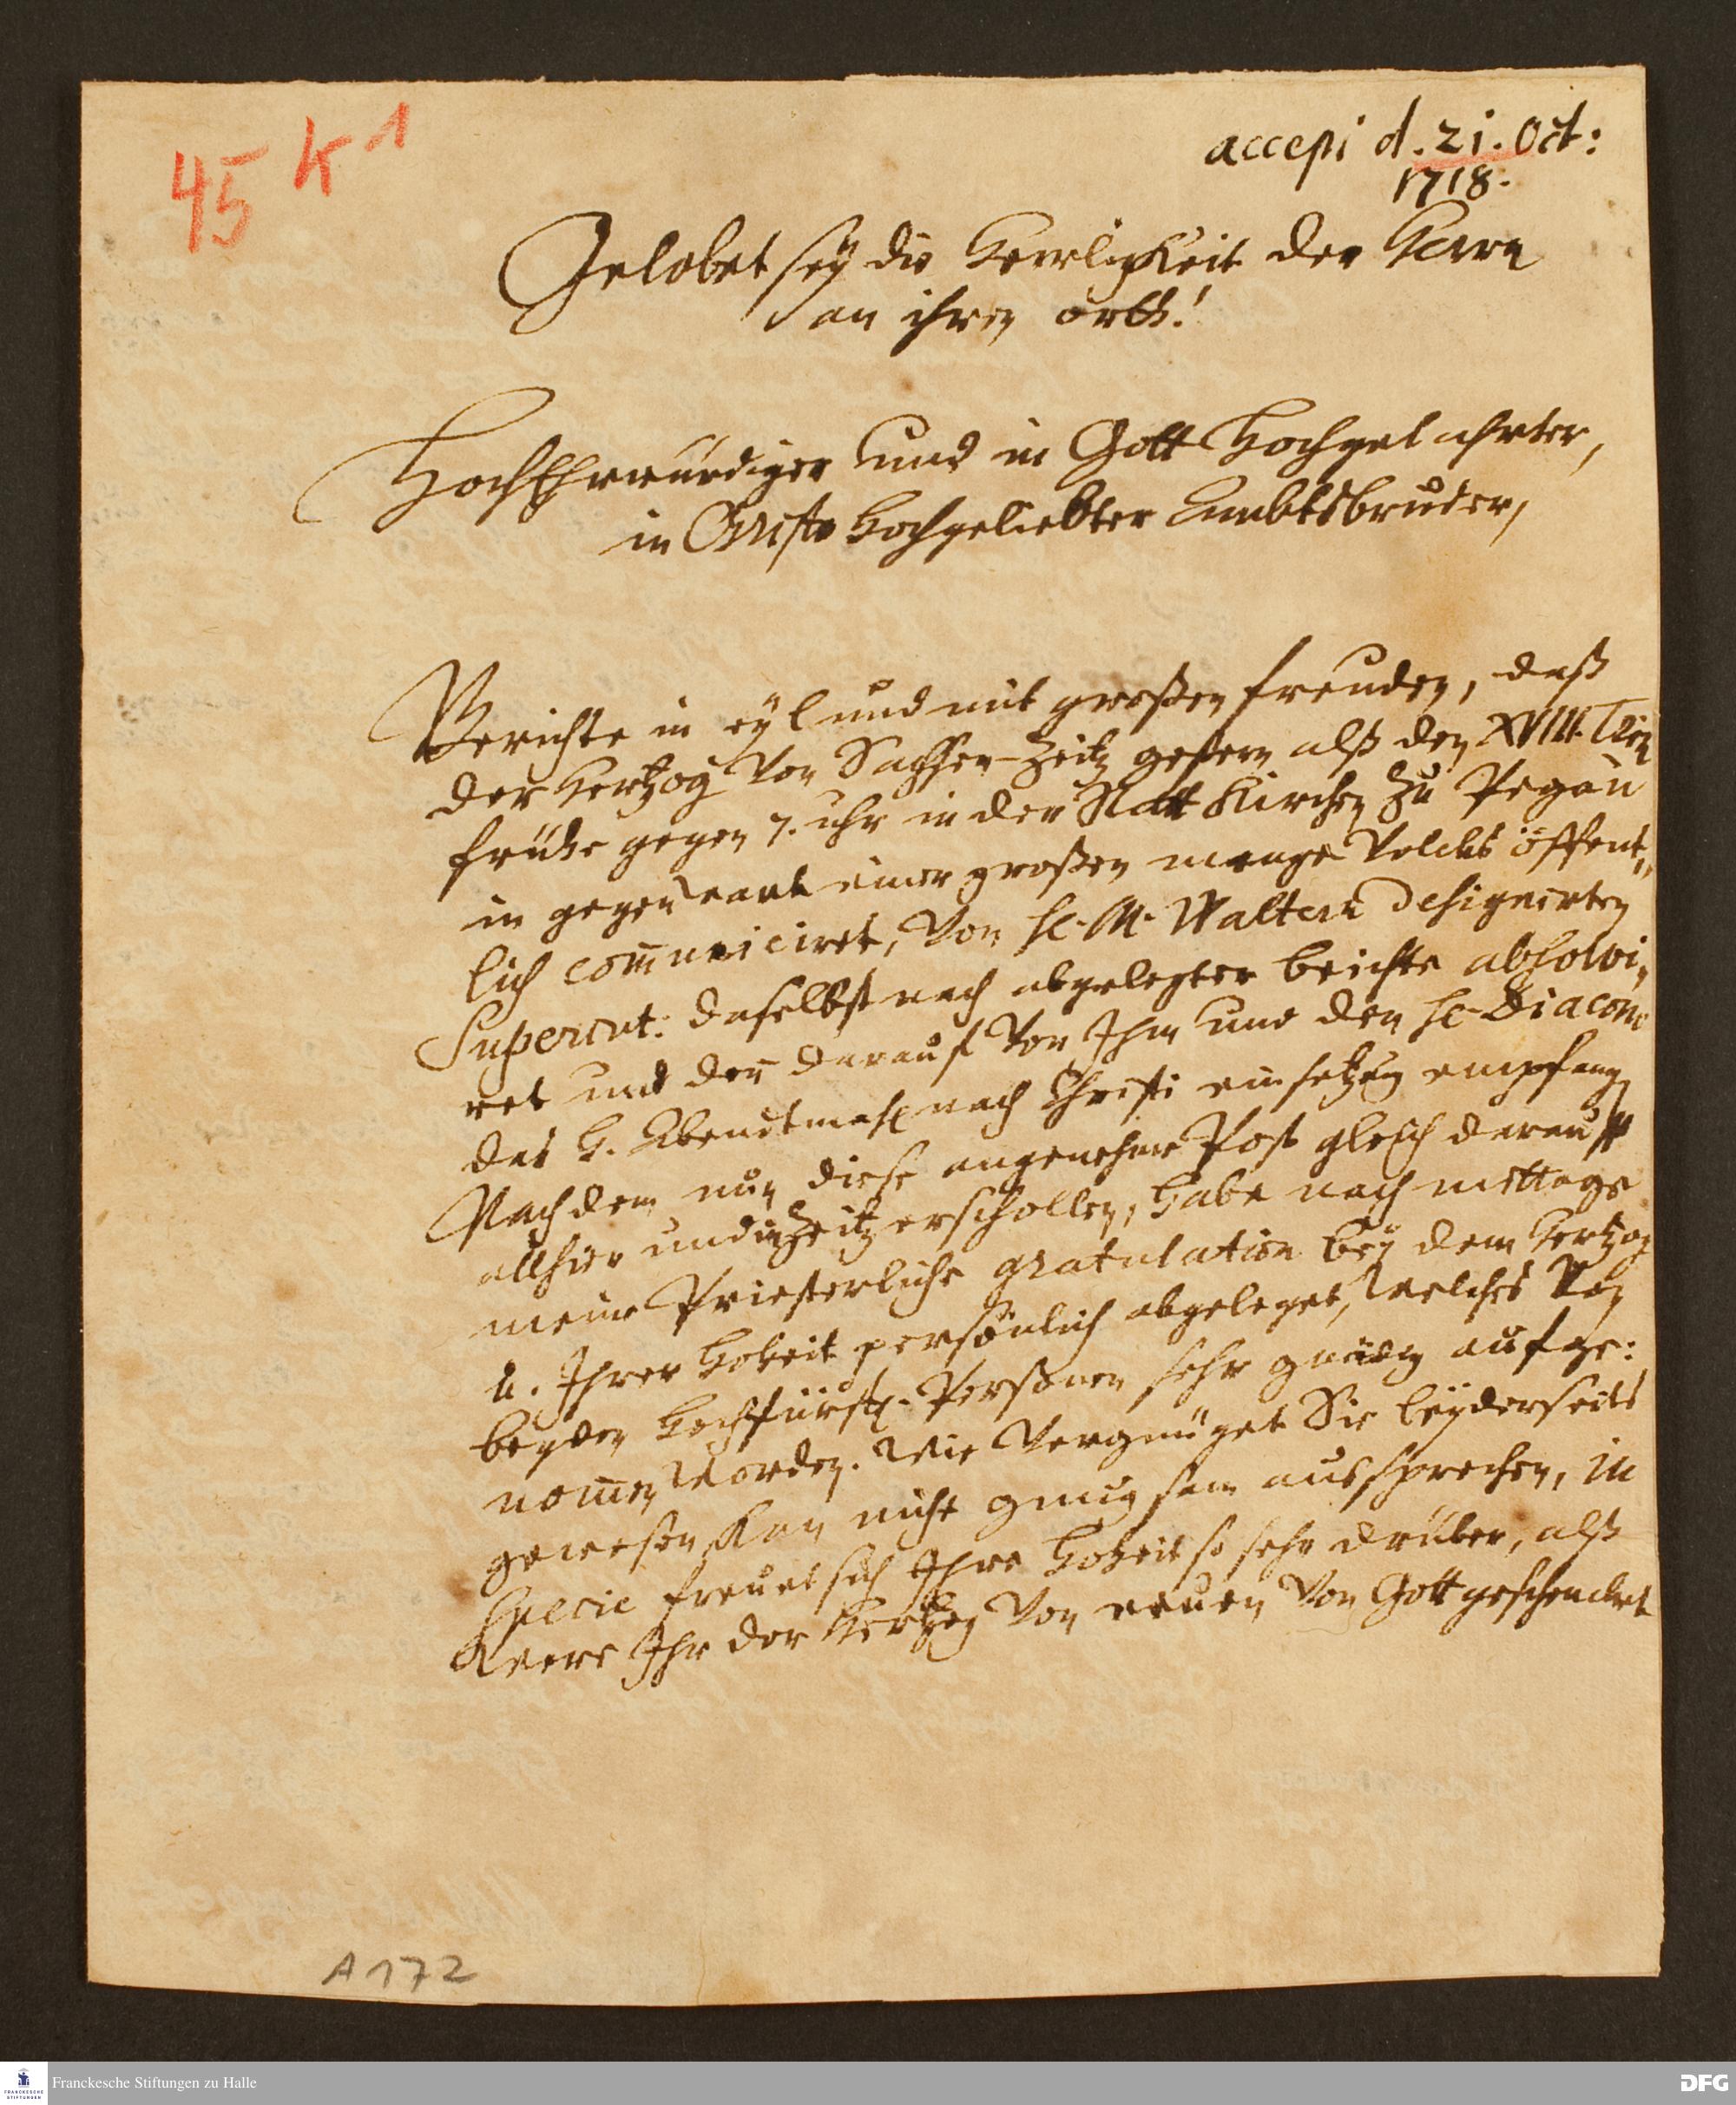 45 K 1
accepi d. 21. Oct:
1718.
Gelobet sey die Herrligkeit des Herrn
an ihren orth!
HochEhrwürdiger und in Gott Hochgelahrter,
in Christo Hochgeliebter Ambtsbruder,
Berichte in eyl und mit großen freuden, daß
der Hertzog von Sachsen-Zeitz gestern alß den XVIII. Trin
frühe gegen 7. uhr in der Statt Kirchen zu Pegau
in gegenwart einer großen menge Volcks öffent„
lich com̄uniciret, von H. M. Waltern designirten
Superint: daselbst nach abgelegter beichte absolvi„
ret und den̄ darauf von Ihm und den H. Diacono
das H. Abendtmahl nach Christi einsetzung empfang
Nachdem nun diese angenehme Post gleich darauff
allhier und in Zeitz erschollen, habe nach mittage
meine Priesterliche gratulation bey dem Hertzog
u. Ihrer Hoheit persönlich abgeleget, welches von
beyden Hochfürstl. Persohnen sehr gnädig aufge:
nom̄en worden. Wie vergnüget Sie beyderseits
gewesen kan nicht gnugsam aussprechen, in
specie freuet sich Ihre Hoheit so sehr drüber, alß
were Ihr der Hertzog von neuen von Gott geschencket
A 172
Franckesche Stiftungen zu Halle
FRANCKESCHE
STIFTUNGEN
DFG